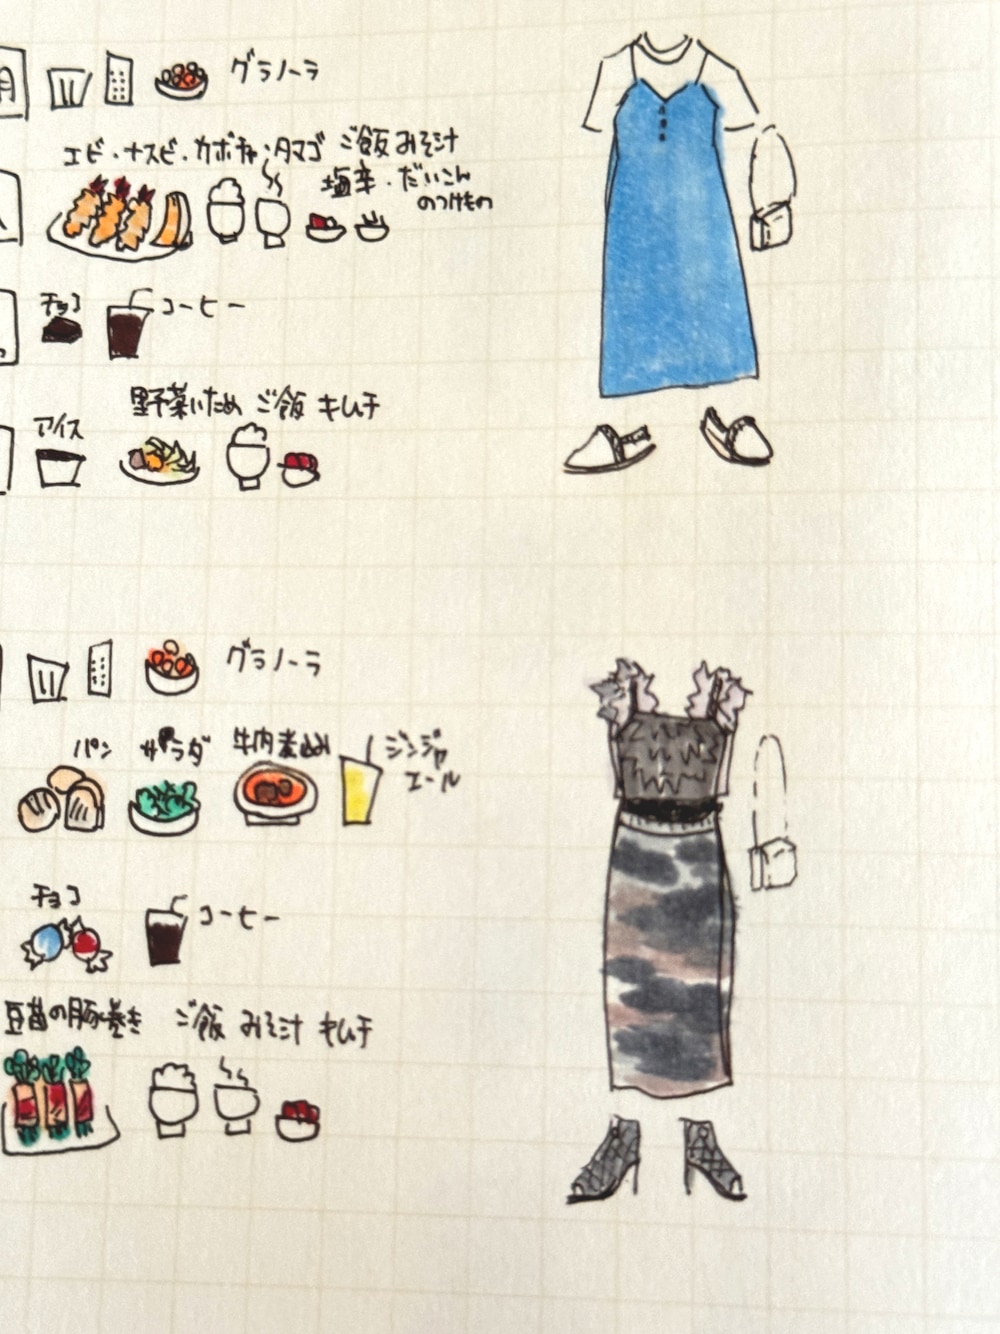 グラノーラ
エビ・ナスビ・カボチャ・タマゴ ご飯 みそ汁
塩辛・だいこん
のつけもの
チョコ
コーヒー
野菜いため ご飯 キムチ
アイス
グラノーラ
パン サラダ 牛肉煮込み ジンジャ
エール
チョコ
コーヒー
豆苗の豚巻き ご飯 みそ汁 キムチ